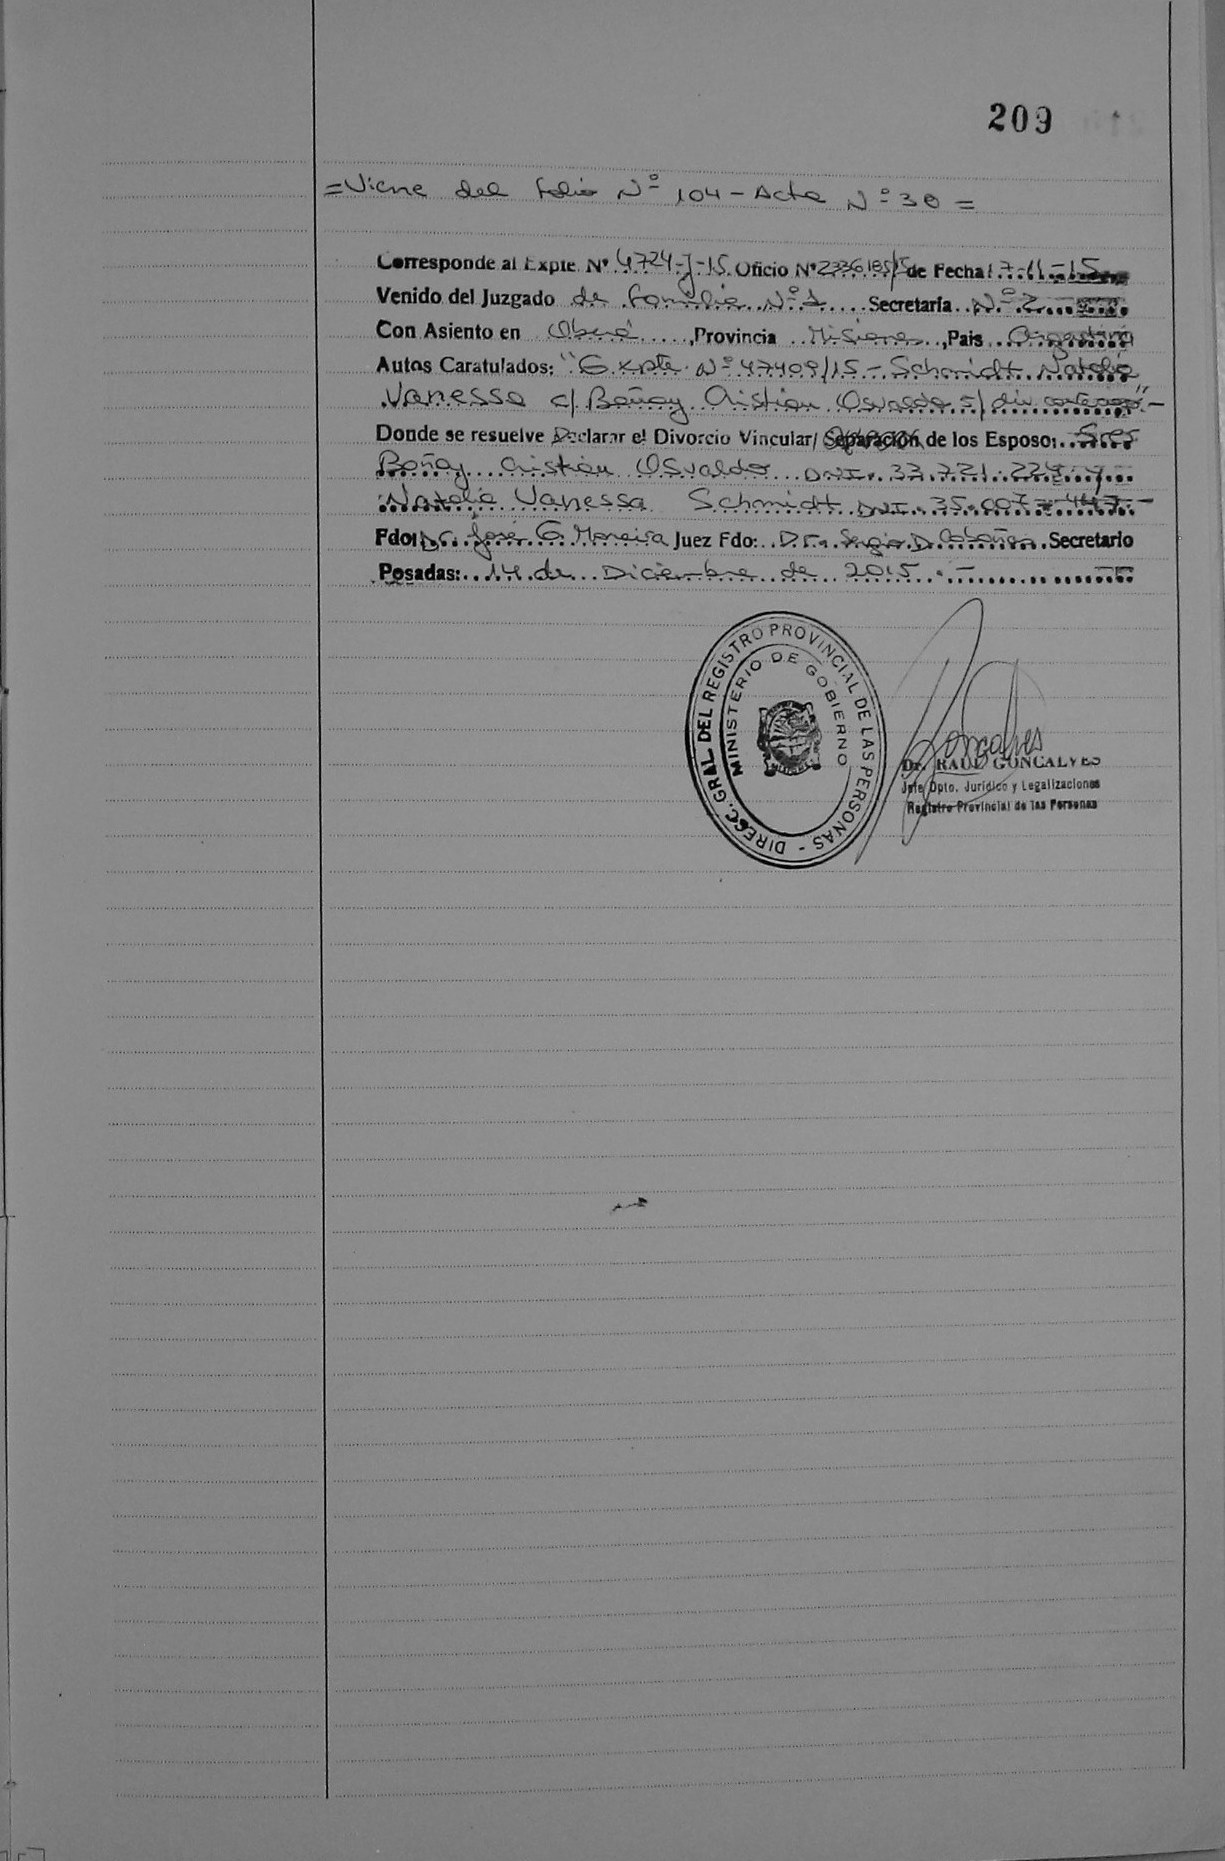 209
=Viene del folio Nº 104 - Acta Nº 38 =
Corresponde al Expte. Nº 4724-J-15. Oficio Nº de Fecha 17-11-15
Venido del Juzgado de familia Nº 1 Secretaría Nº 2
Con Asiento en Oberá, Provincia Misiones, Pais Argentina
Autos Caratulados: "Expte. Nº 47409/15 - Schmidt Natalia
Vanessa c/ Boñay Cristian Osvaldo s/ div.
Donde se resuelve Declarar el Divorcio Vincular/ Separación de los Esposos: Sres
Boñay Cristian Osvaldo DNI. 33.721.224 y
Natalia Vanessa Schmidt DNI. 35.007.447.-
Fdo: Dr. José G. Moreira Juez Fdo: Dr. Sergio D. Secretario
Posadas: 14 de Diciembre de 2015.-
DIRECC. GRAL. DEL REGISTRO PROVINCIAL DE LAS PERSONAS -
MINISTERIO DE GOBIERNO
Dr. RAUL GONCALVES
Jefe Dpto. Jurídico y Legalizaciones
Registro Provincial de las Personas